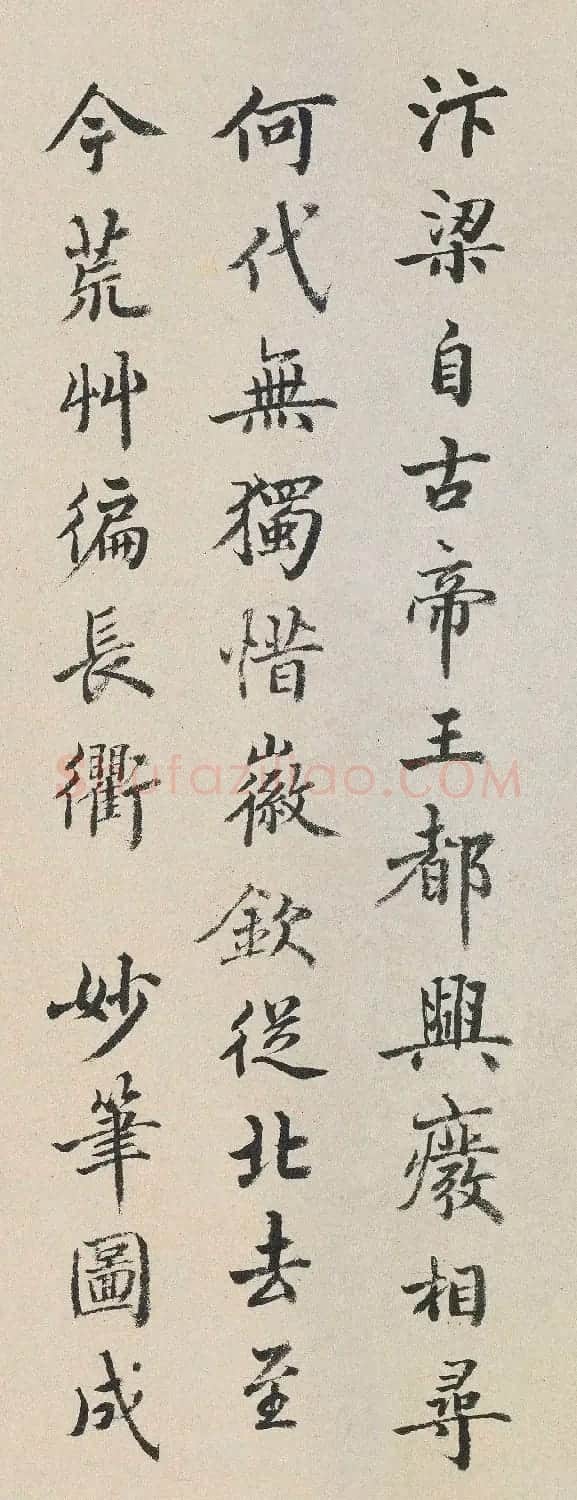 汴梁自古帝王都興廢相尋
何代無獨惜徽欽從北去至
今荒艸徧長衢 妙筆圖成
Shufaziliao.COM